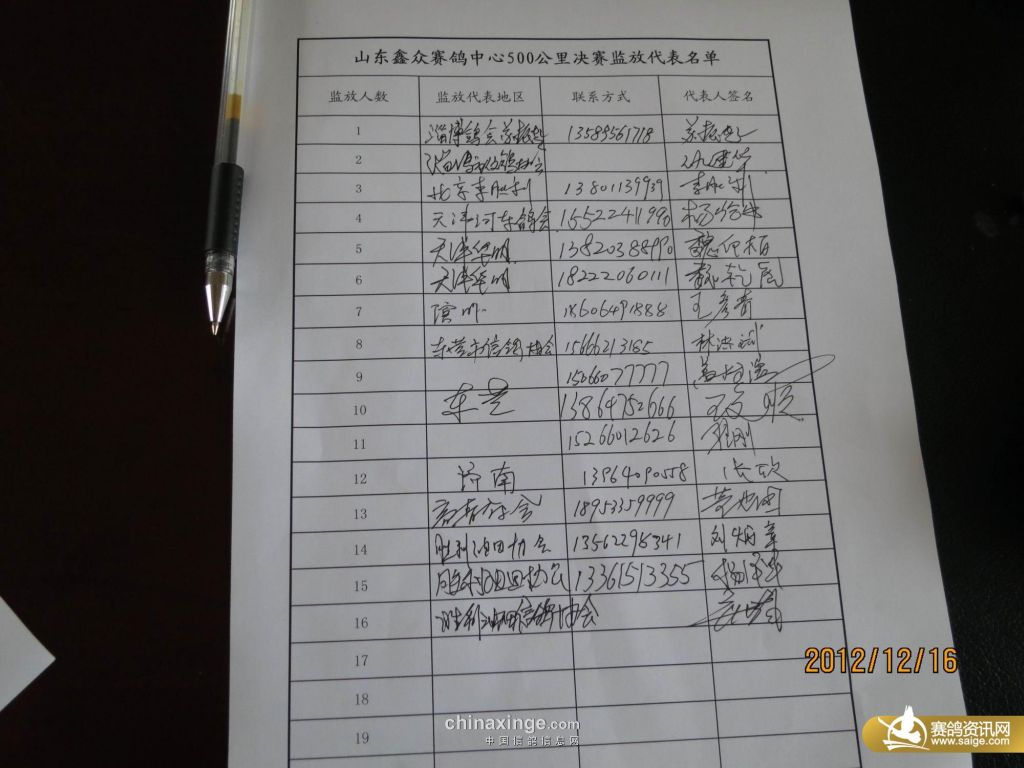 山东鑫众赛鸽中心500公里决赛监放代表名单
监放人数 监放代表地区 联系方式 代表人签名
1 淄博鸽会 13589561718
2
3 北京李胜利 13801139939 李胜利
4 天津河东鸽会 15522411990
5 天津华明 13820384990 魏仰柏
6 天津华明 18222060111
7 滨州 18606491888 王彦青
8 东营市信鸽协会 15666213185 林洪斌
9 1506077777
10 东营 13864752666
11 15266012626
12 济南 13964090558 张欣
13 18953359999
14 胜利油田协会 13562295341 刘炳章
15 胜利油田协会 13361513355
16 胜利油田信鸽协会
17
18
19
2012/12/16
chinaxinge.com
中国信鸽信息网
赛鸽资讯网
www.saige.com